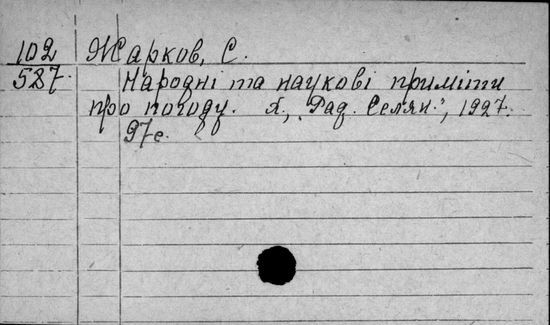 102 Жарков, С.
527. Народні та наукові приміти
про погоду. Х., "Рад. Селян.", 1927.
97с.